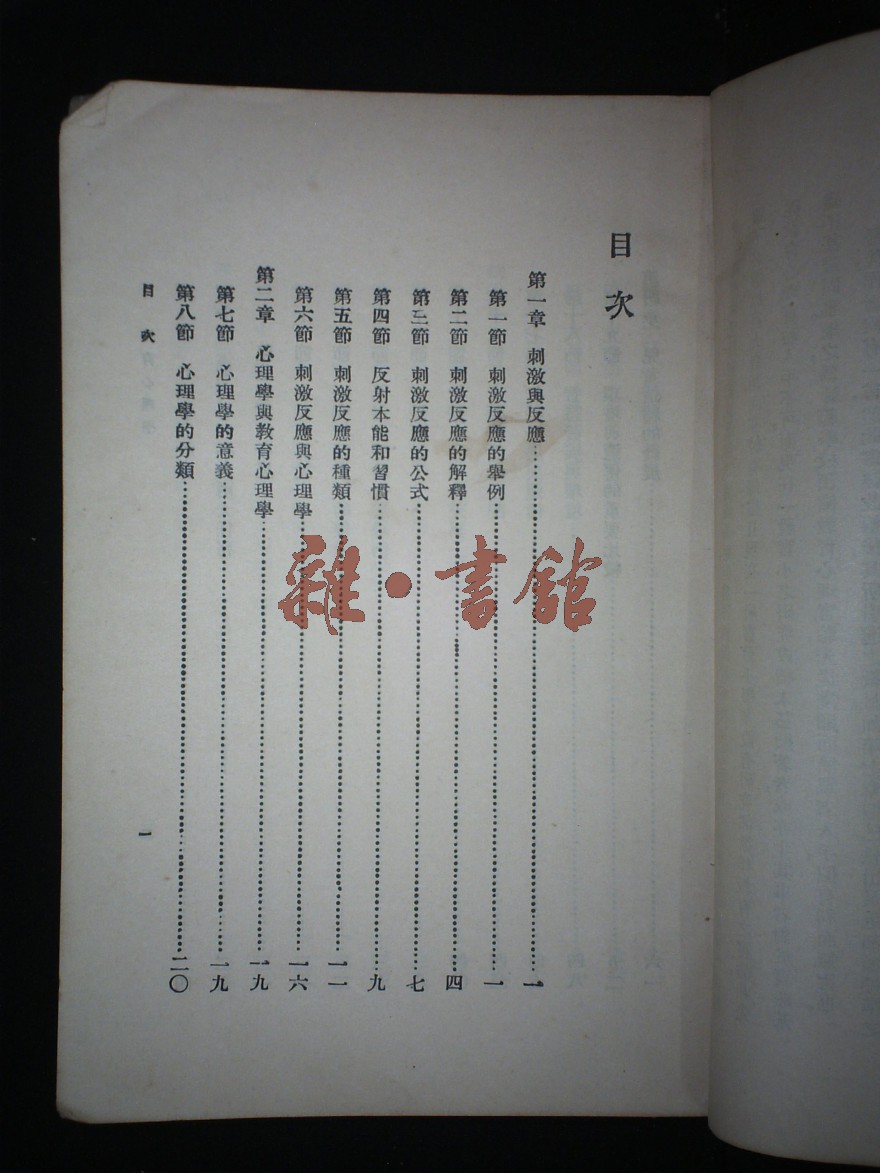 目次
第一章 刺激與反應……一
第一節 刺激反應的舉例……一
第二節 刺激反應的解釋……四
第三節 刺激反應的公式……七
第四節 反射本能和習慣……九
第五節 刺激反應的種類……一一
第六節 刺激反應與心理學……一六
第二章 心理學與教育心理學……一九
第七節 心理學的意義……一九
第八節 心理學的分類……二〇
目次
一
雜·書館